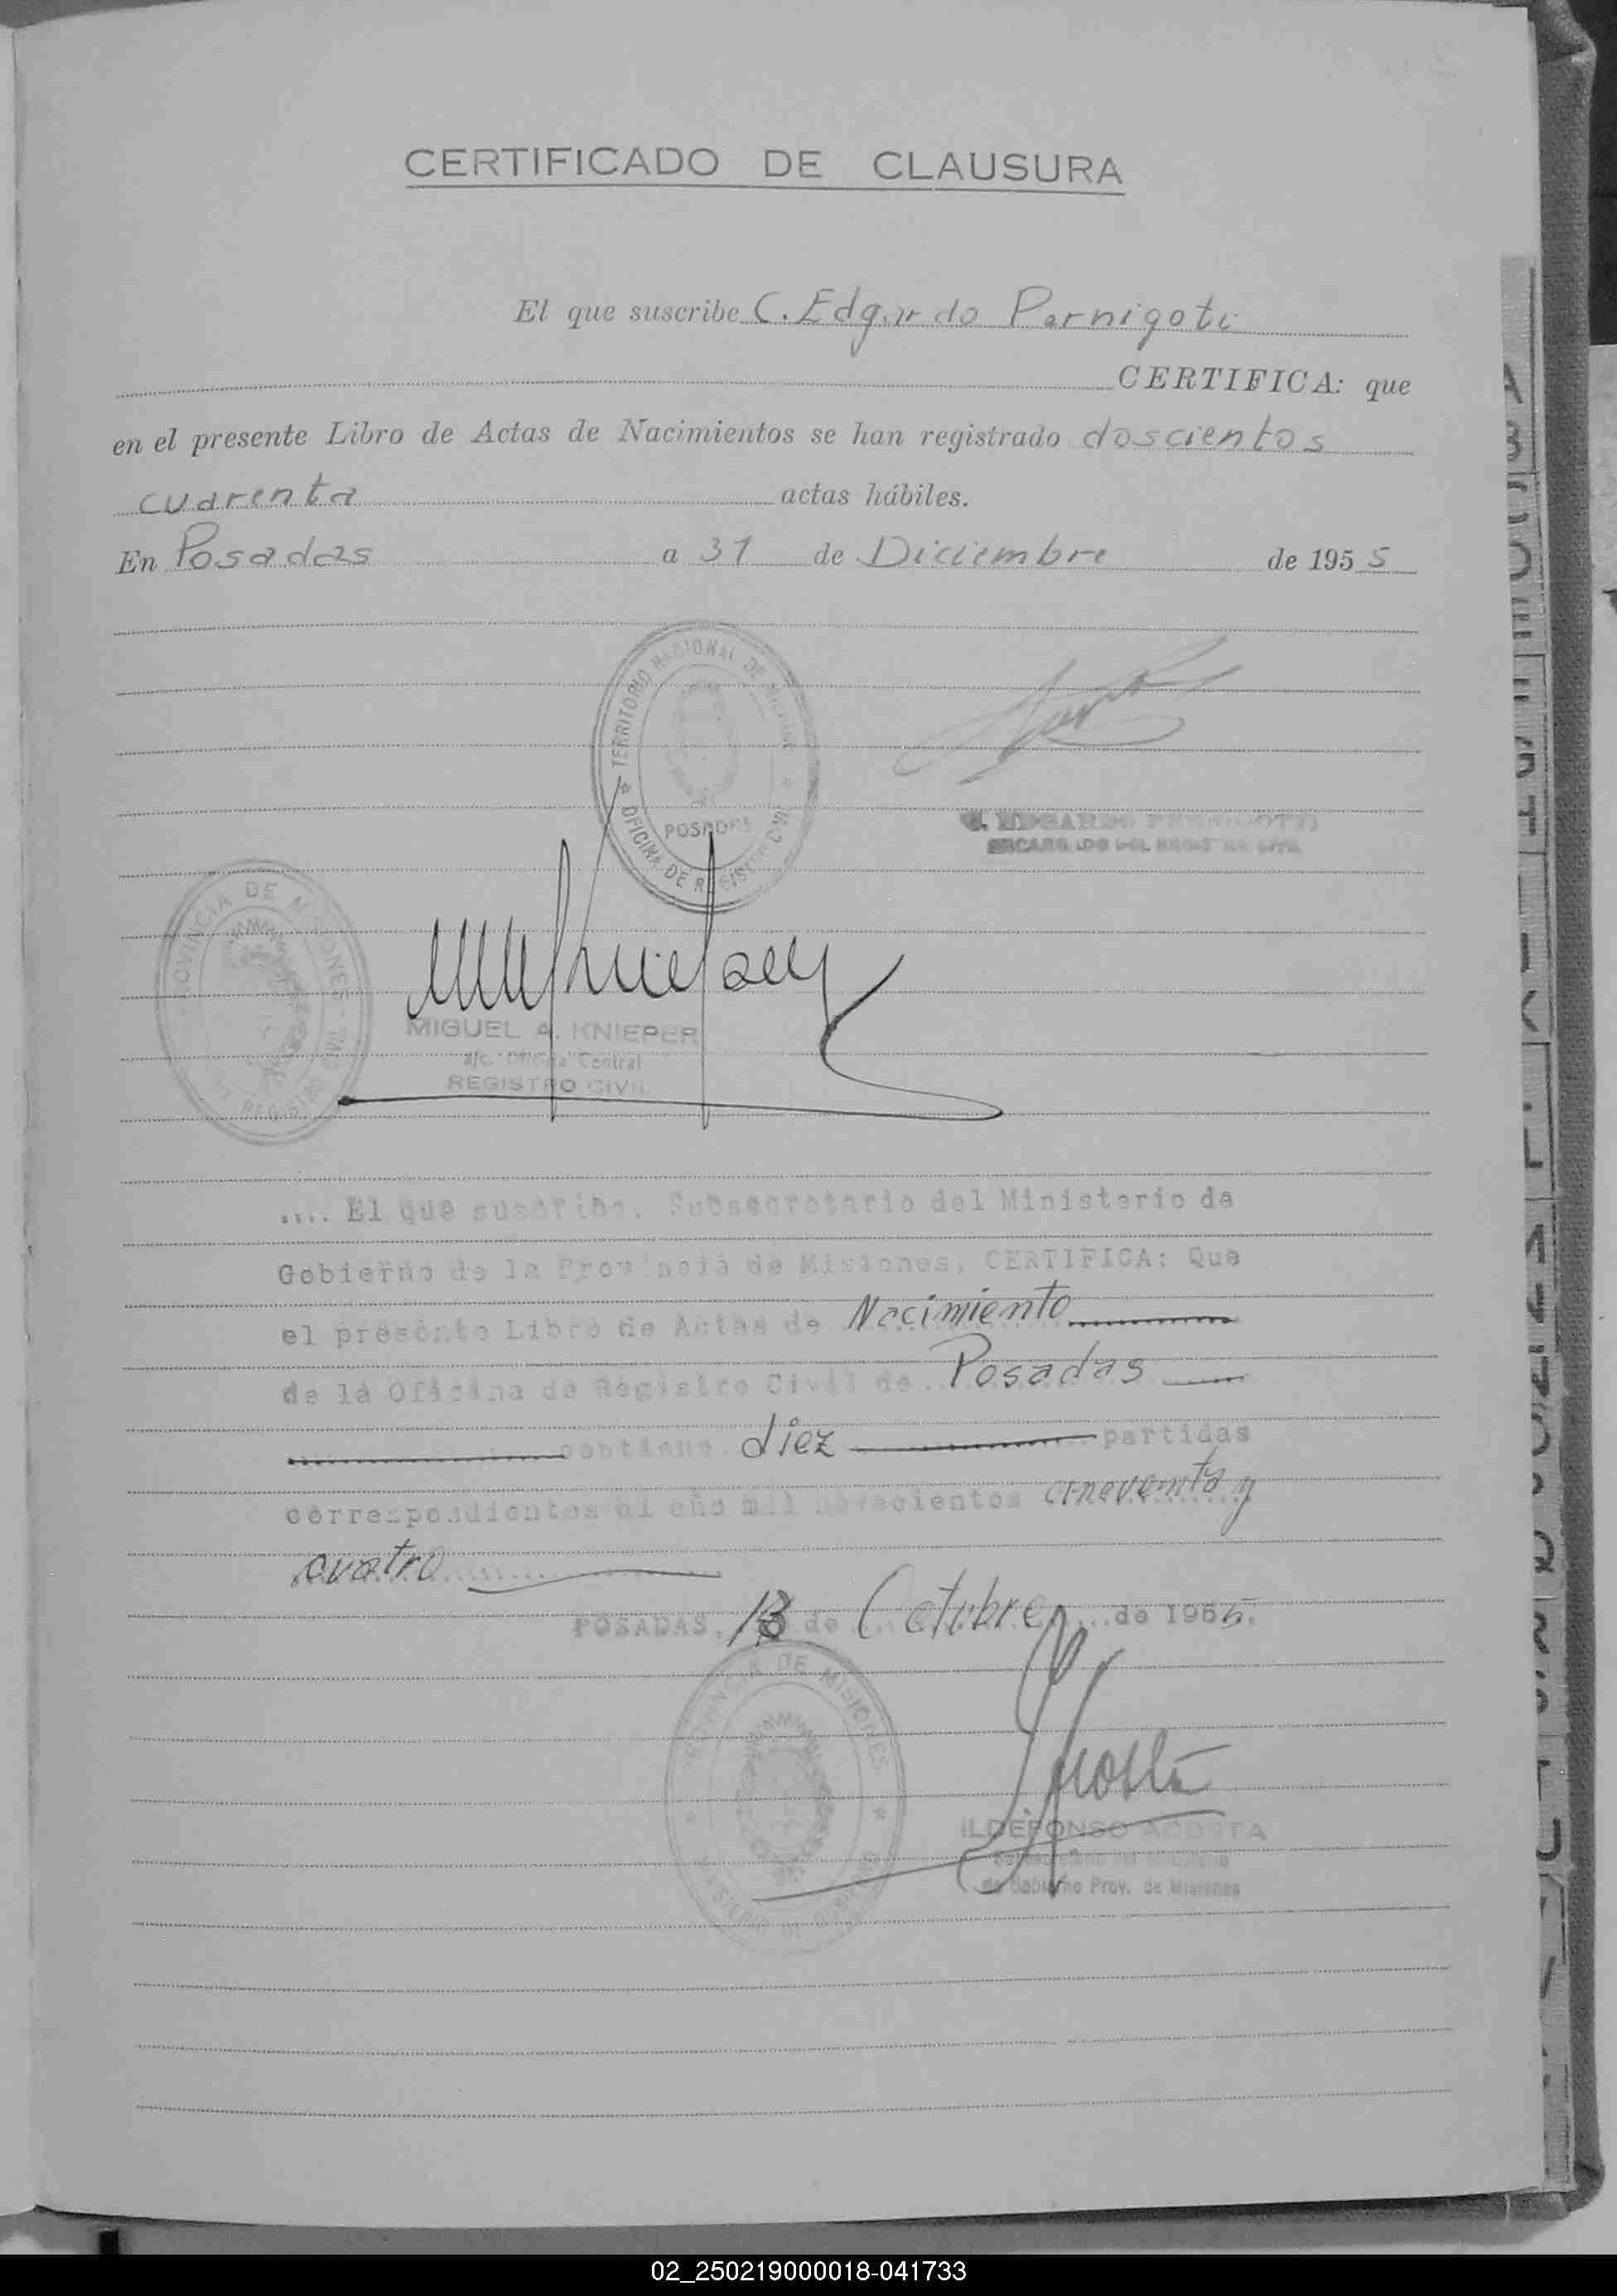 CERTIFICADO DE CLAUSURA
El que suscribe C. Edgardo Pernigoti
CERTIFICA: que
en el presente Libro de Actas de Nacimientos se han registrado doscientos
cuarenta actas hábiles.
En Posadas a 31 de Diciembre de 1955
TERRITORIO NACIONAL DE
OFICINA DE REGISTRO CIVIL
POSADAS
C. EDGARDO PERNIGOTTI
PROVINCIA DE MISIONES
REGISTRO CIVIL
MIGUEL A. KNIEPER
a/c. Oficina Central
REGISTRO CIVIL
.... El que suscribe, Subsecretario del Ministerio de
Gobierno de la Provincia de Misiones, CERTIFICA: Que
el presente Libro de Actas de Nacimiento
de la Oficina de Registro Civil de Posadas
contiene diez partidas
correspondientes al año mil novecientos cincuenta y
cuatro
POSADAS, de Octubre de 1955.
PROVINCIA DE MISIONES
MINISTERIO DE GOBIERNO
ILDEFONSO ACOSTA
Subsecretario del Ministerio
de Gobierno Prov. de Misiones
02_250219000018-041733